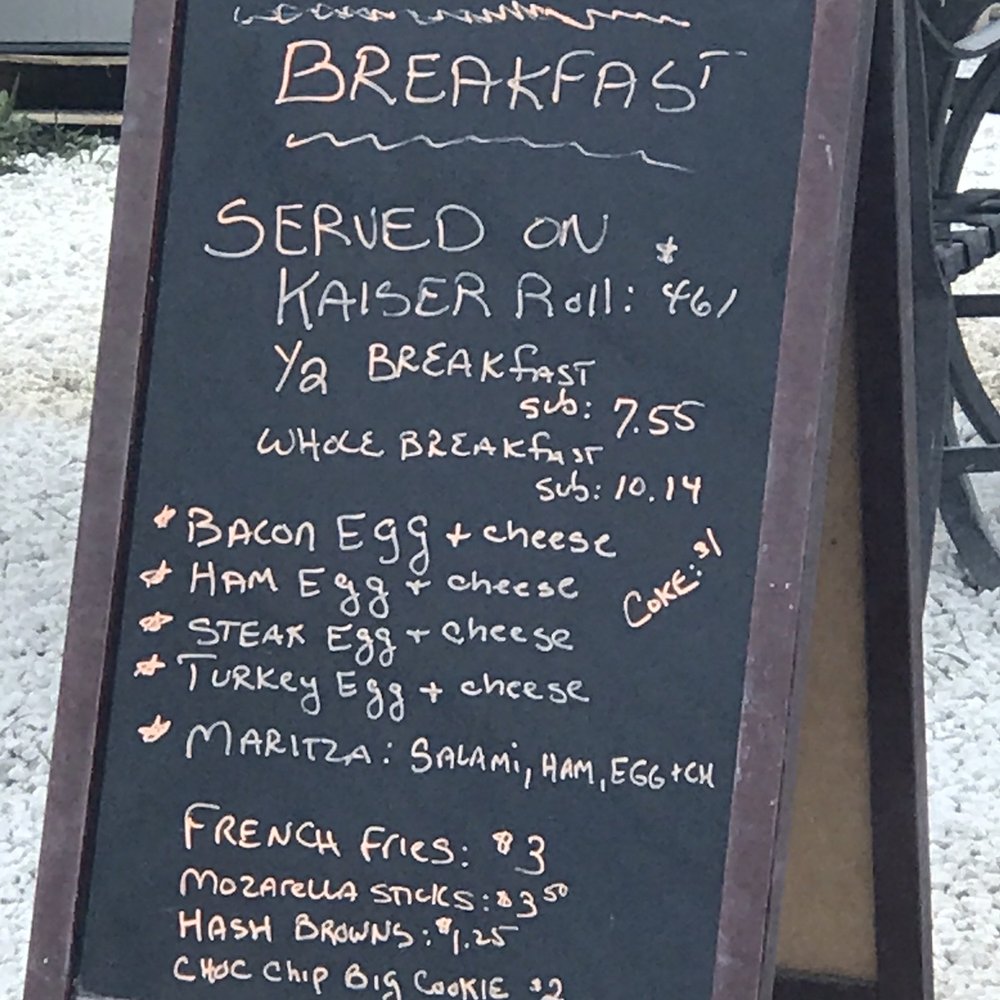 BREAKFAST
SERVED ON
KAISER Roll: 461
1/2 BREAKfAST
sub: 7.55
WHOLE BREAKfAST
sub: 10.14
BACON Egg + cheese
COKE: $1
HAM Egg + cheese
STEAK Egg + cheese
TURKey Egg + cheese
MARITZA: SALAMi, HAM, EGG + CH
FRENCH FRies: $3
MOZARELLA STICKS: $3 50
HASH BROWNS: $1.25
CHOC CHip Big COOKIE $2